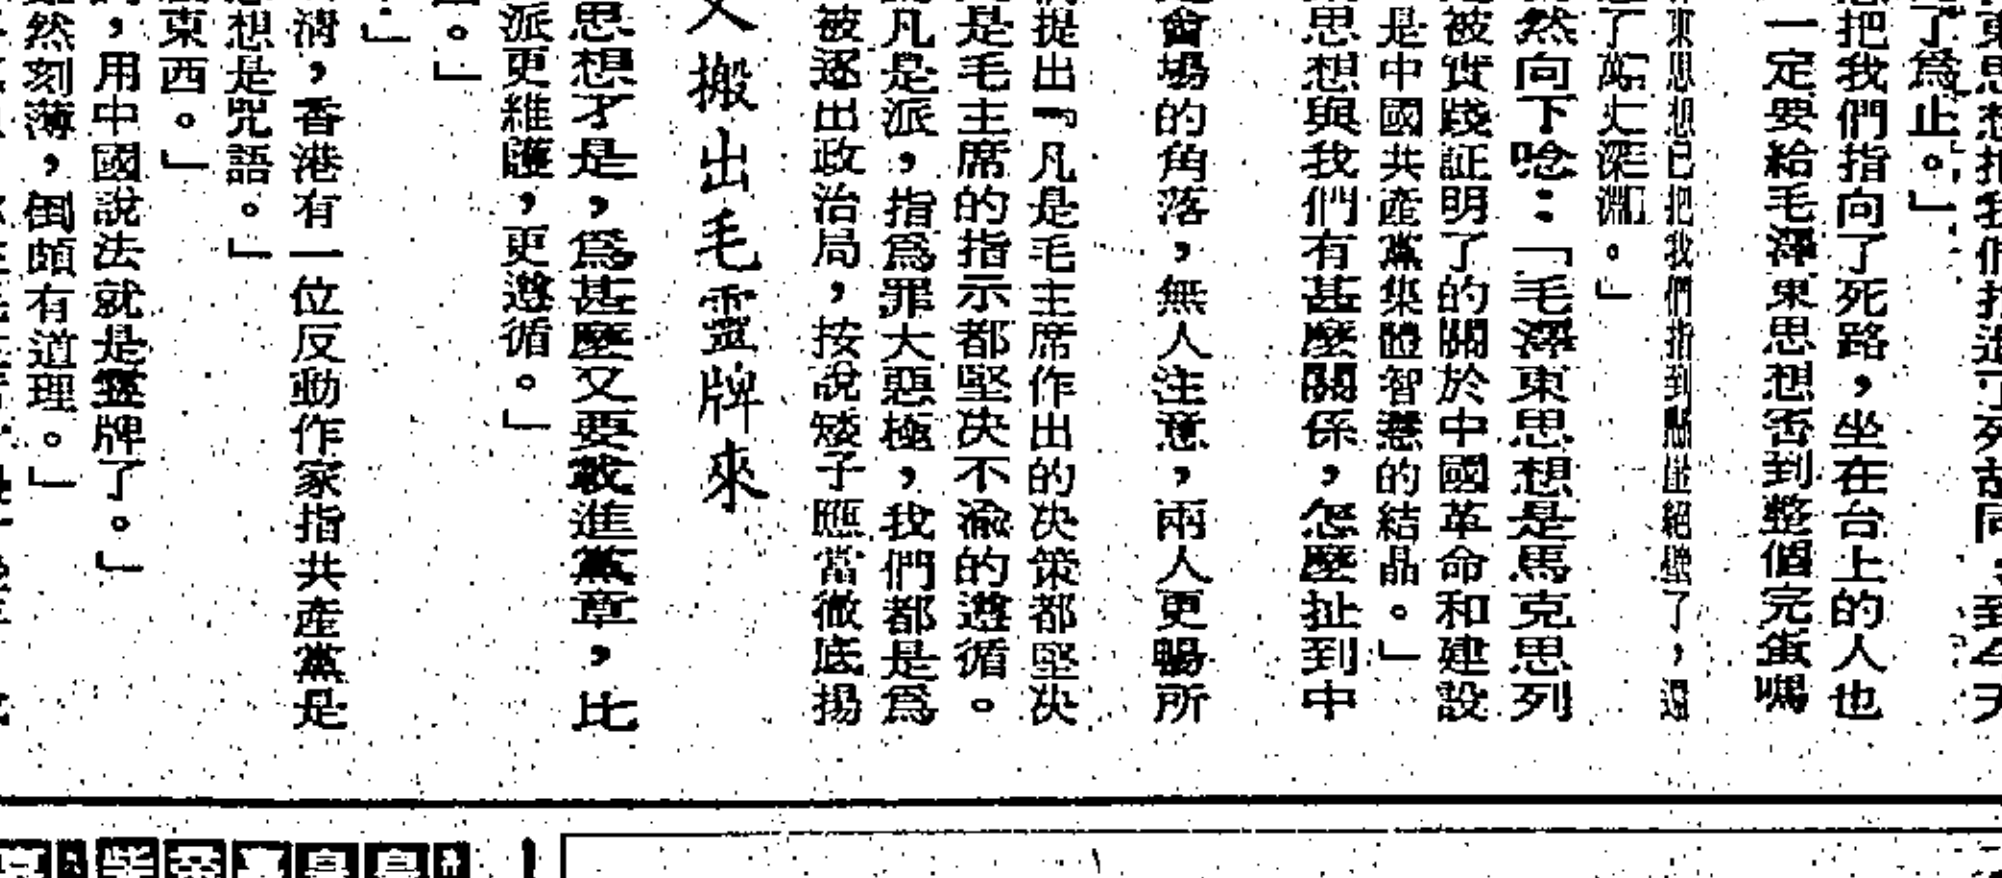 東思想把我們指進了死胡同，到今天
了爲止。」
把我們指向了死路，坐在台上的人也
一定要給毛澤東思想否到整個完蛋嗎
東思想已把我們指到懸崖絕壁了，還
了萬丈深淵。」
然向下唸：「毛澤東思想是馬克思列
被實踐証明了的關於中國革命和建設
是中國共產黨集體智慧的結晶。」
思想與我們有甚麼關係，怎麼扯到中
會場的角落，無人注意，兩人更暢所
提出『凡是毛主席作出的決策都堅决
是毛主席的指示都堅决不渝的遵循。
凡是派，指爲罪大惡極，我們都是爲
被逐出政治局，按說矮子應當徹底揚
又搬出毛靈牌來
思想才是，爲甚麼又要載進黨章，比
派更維護，更遵循。」
。」
清，香港有一位反動作家指共產黨是
想是咒語。」
東西。」
，用中國說法就是靈牌了。」
然刻薄，倒頗有道理。」